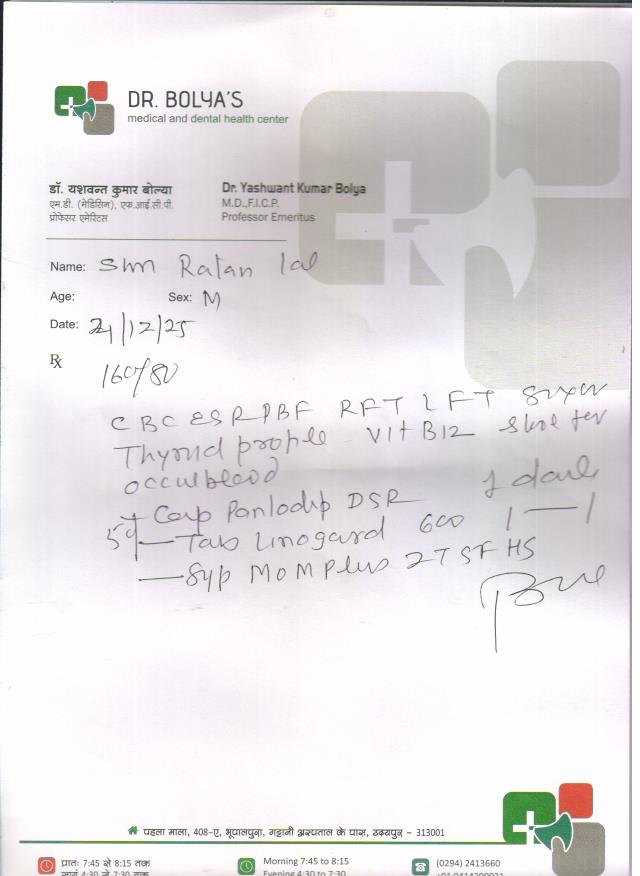 DR. BOLYA'S
medical and dental health center
डॉ. यशवन्त कुमार बोल्या
एम.डी. (मेडिसिन), एफ.आई.सी.पी.
प्रोफेसर एमेरिटस
Dr. Yashwant Kumar Bolya
M.D.,F.I.C.P.
Professor Emeritus
Name: Shri Ratan lal
Age: Sex: M
Date: 24/12/25
Rx
160/80
CBC ESR PBF RFT LFT
Thyroid profile Vit B12 Stool for
occult blood
Cap DSR 1 daily
5d Tab Linogard 600 1 — 1
Syp MOM Plus 2TSF HS
पहला माला, 408-ए, भूपालपुरा, गट्टानी अस्पताल के पास, उदयपुर - 313001
प्रातः 7:45 से 8:15 तक
सायं 4:30 से 7:30 तक
Morning 7:45 to 8:15
Evening 4:30 to 7:30
(0294) 2413660